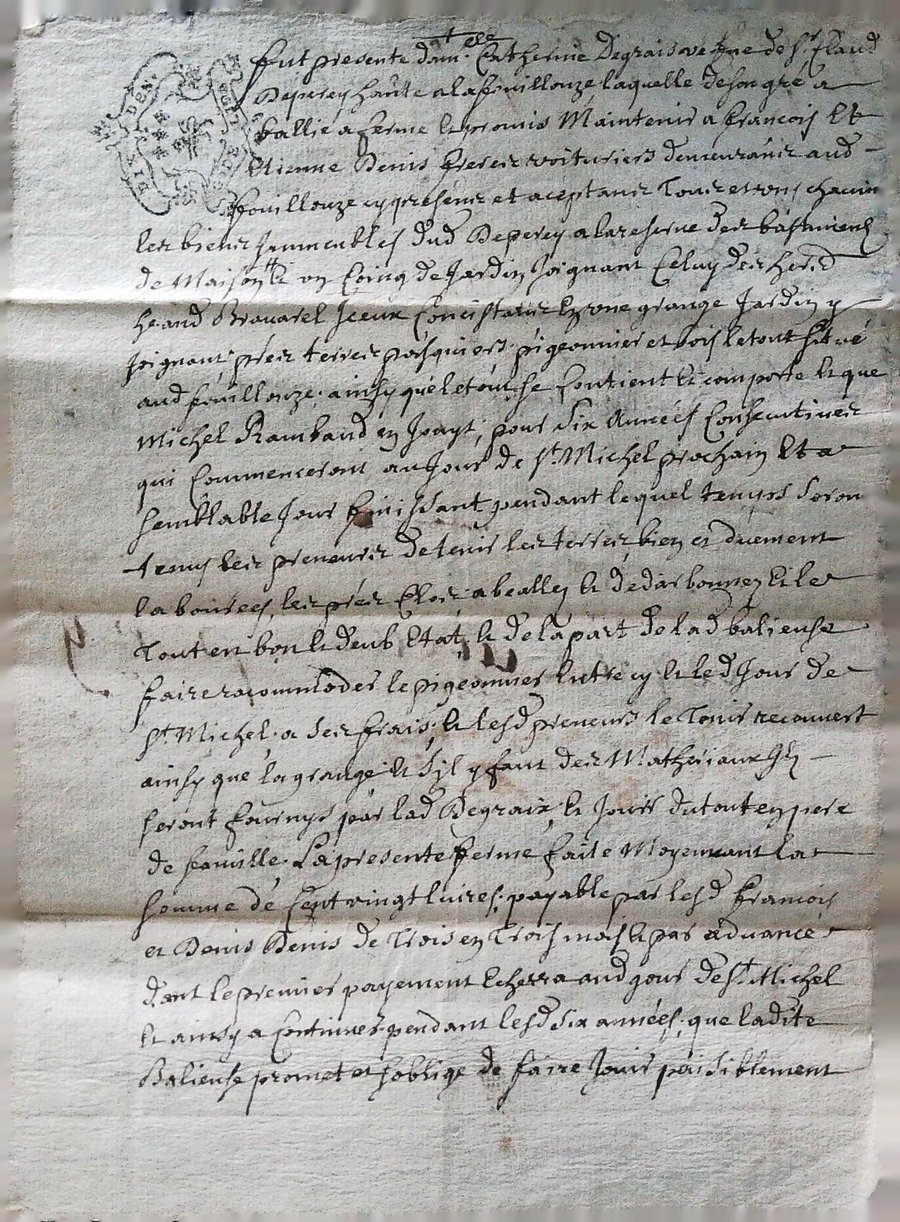 Fut presente dam.elle Catherine Degraix veufve de Sr. Flaud
Deperey habte a la fouillouze laquelle de son gré a
ballié a ferme et promis Maintenir a François Et
Etienne Denis freres voituriers demeurants aud
fouillouze cy presents et aceptants Tous et vns chacuns
les biens Jmmeubles dud Deperey a la reserve des bastiments
de Maison et vn Coing de Jardin Joignant Celuy des her.d
heaud Brouarel Jceux Concistants En vne grange Jardin y
Joignant, prés terres pasquiers pigeonnier et bois le tout Situé
aud fouillouze, ainsy que le tout se Contient et comporte et que
Michel Rambaud en Jouyt, pour Six Années Consecutives
qui Commenceront au Jour de St. Michel prochain Et a
semblable Jour finissant pendant lequel temps Seron
tenus les preneurs de tenir les terres bien et duement
labourées, les prés Clos, abeallés et dedarbonnez et le
Tout en bon et deub Etat, et de la part de lad balieuse
faire racommoder le pigeonnier Entre cy et led Jour de
St. Michel a ses frais, et lesd preneurs le Tenir recouvert
ainsy que la grange et S'jl y faut des Matheriaux Jls
seront fournys par lad Degraix, et Jouir du tout en pere
de famille, La presente ferme faite Moyennant la
somme de Cent vingt livres, payable par lesd François
et Denis Denis de Trois en Trois mois et par advance
dont le premier payement Echerra aud jour de St. Michel
Et ainsy a Continuer pendant lesd six années, que ladite
Balieuse promet et soblige de faire Jouir paisiblement